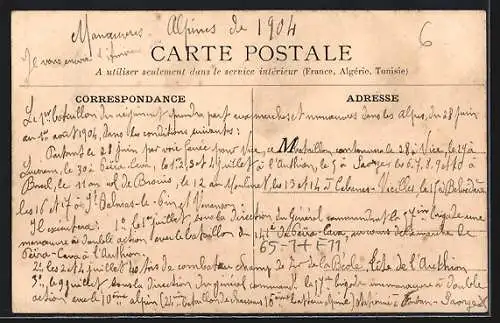 Manœuvres Alpines de 1904
6
Je vous envoie
CARTE POSTALE
A utiliser seulement dans le service intérieur (France, Algérie, Tunisie)
CORRESPONDANCE
ADRESSE
Le 1er bataillon du régiment prendra part aux marches et manœuvres dans les Alpes, du 28 juin
au 1er août 1904, dans les conditions suivantes :
Partant le 28 juin par voie ferrée pour Nice, ce Bataillon cantonnera le 28 à Nice, le 29 à
Lucéram, le 30 à Peïra-Cava, les 1, 2, 3 et 4 juillet à l'Authion, le 5 à Saorge les 6, 7, 8, 9 et 10 à
Breil, le 11 au col de Brouis, le 12 au Moulinet, les 13 et 14 à Cabanes-Vieilles, le 15 à Belvédère
les 16 et 17 à St Dalmas-le-
Il exécutera : 1° le 1er juillet, sous la direction du Général commandant la brigade une
manœuvre à double action avec le bataillon du 141e de Peïra-Cava, au cours de la marche de
Peïra-Cava à l'Authion.
65-1+E11
2°, les 2 et 4 juillet, tirs de combat au champ de Tir de la Béole, tête de l'Authion
3°, le 9 juillet sous la direction du général command. la brigade manœuvre à double
action avec le 10ème alpin (24ème bataillon de chasseurs